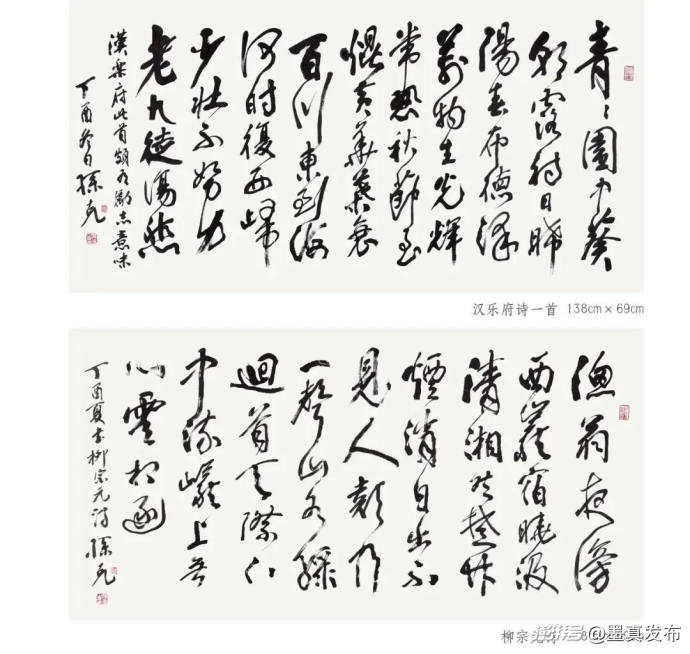 青〻園中葵
朝露待日晞
陽春布德澤
萬物生光輝
常恐秋節至
焜黃華葉衰
百川東到海
何時復西歸
少壯不努力
老大徒傷悲
漢樂府此首頗有勵志意味
丁酉冬日孫克
汉乐府诗一首 138cm×69cm
漁翁夜傍
西巖宿曉汲
清湘然楚竹
煙消日出不
見人欸乃
一聲山水綠
迴首天際下
中流巖上無
心雲相逐
丁酉夏書柳宗元詩孫克
柳宗元
澎湃号@墨真发布